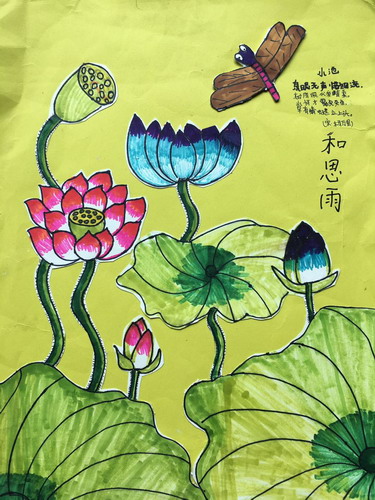 小池
泉眼无声惜细流,
树阴照水爱晴柔。
小荷才露尖尖角,
早有蜻蜓立上头。
(宋 杨万里)
和
思
雨